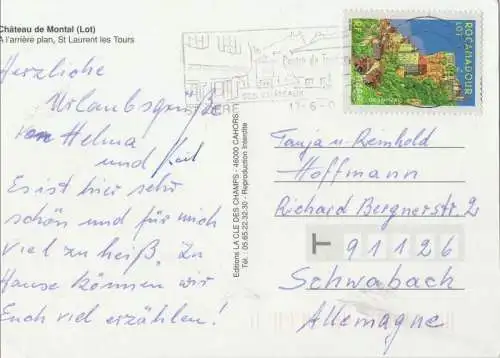 Château de Montal (Lot)
A l'arrière plan, St Laurent les Tours
Herzliche
Urlaubsgrüße
von Helma
und Karl
Es ist hier sehr
schön und für mich
viel zu heiß. Zu
Hause können wir
Euch viel erzählen!
Editions LA CLE DES CHAMPS - 46000 CAHORS
Tél. : 05.65.22.32.30 - Reproduction interdite
ROCAMADOUR
LOT
RF
Tanja u. Reinhold
Hoffmann
Richard Bergnerstr. 2
T 91126
Schwabach
Allemagne